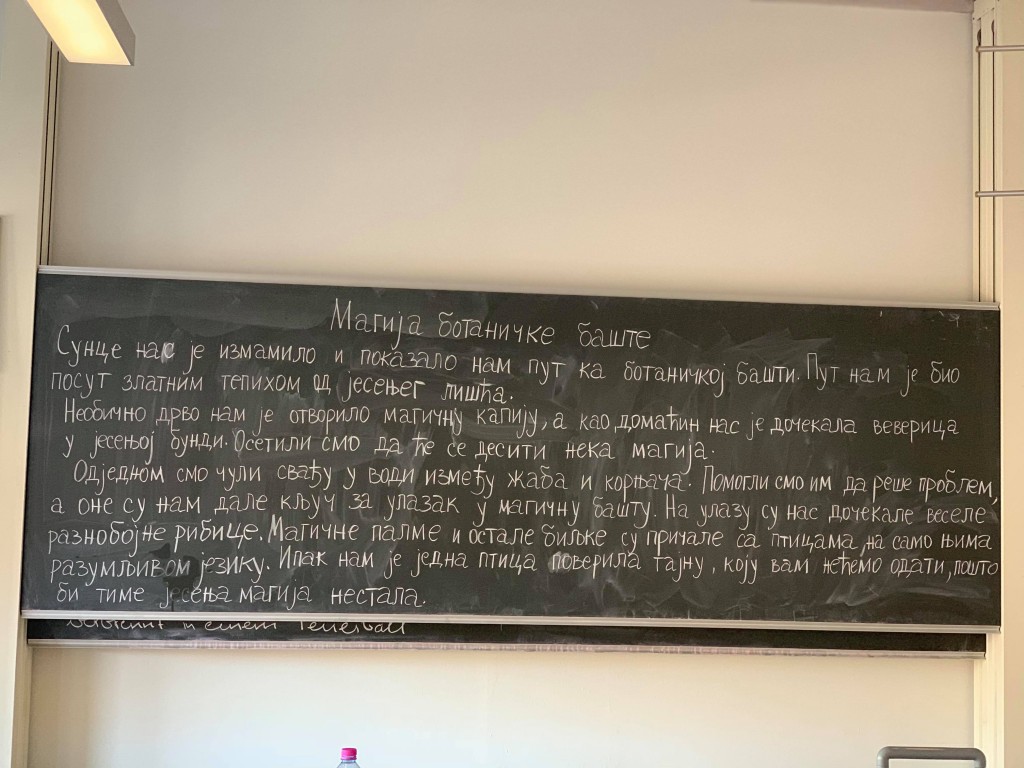 Магија ботаничке баште
Сунце нас је измамило и показало нам пут ка ботаничкој башти. Пут нам је био
посут златним тепихом од јесењег лишћа.
Необично дрво нам је отворило магичну капију, а као домаћин нас је дочекала веверица
у јесењој бунди. Осетили смо да ће се десити нека магија.
Одједном смо чули свађу у води између жаба и корњача. Помогли смо им да реше проблем,
а оне су нам дале кључ за улазак у магичну башту. На улазу су нас дочекале веселе
разнобојне рибице. Магичне палме и остале биљке су причале са птицама, на само њима
разумљивом језику. Ипак нам је једна птица поверила тајну, коју вам нећемо одати, пошто
би тиме јесења магија нестала.